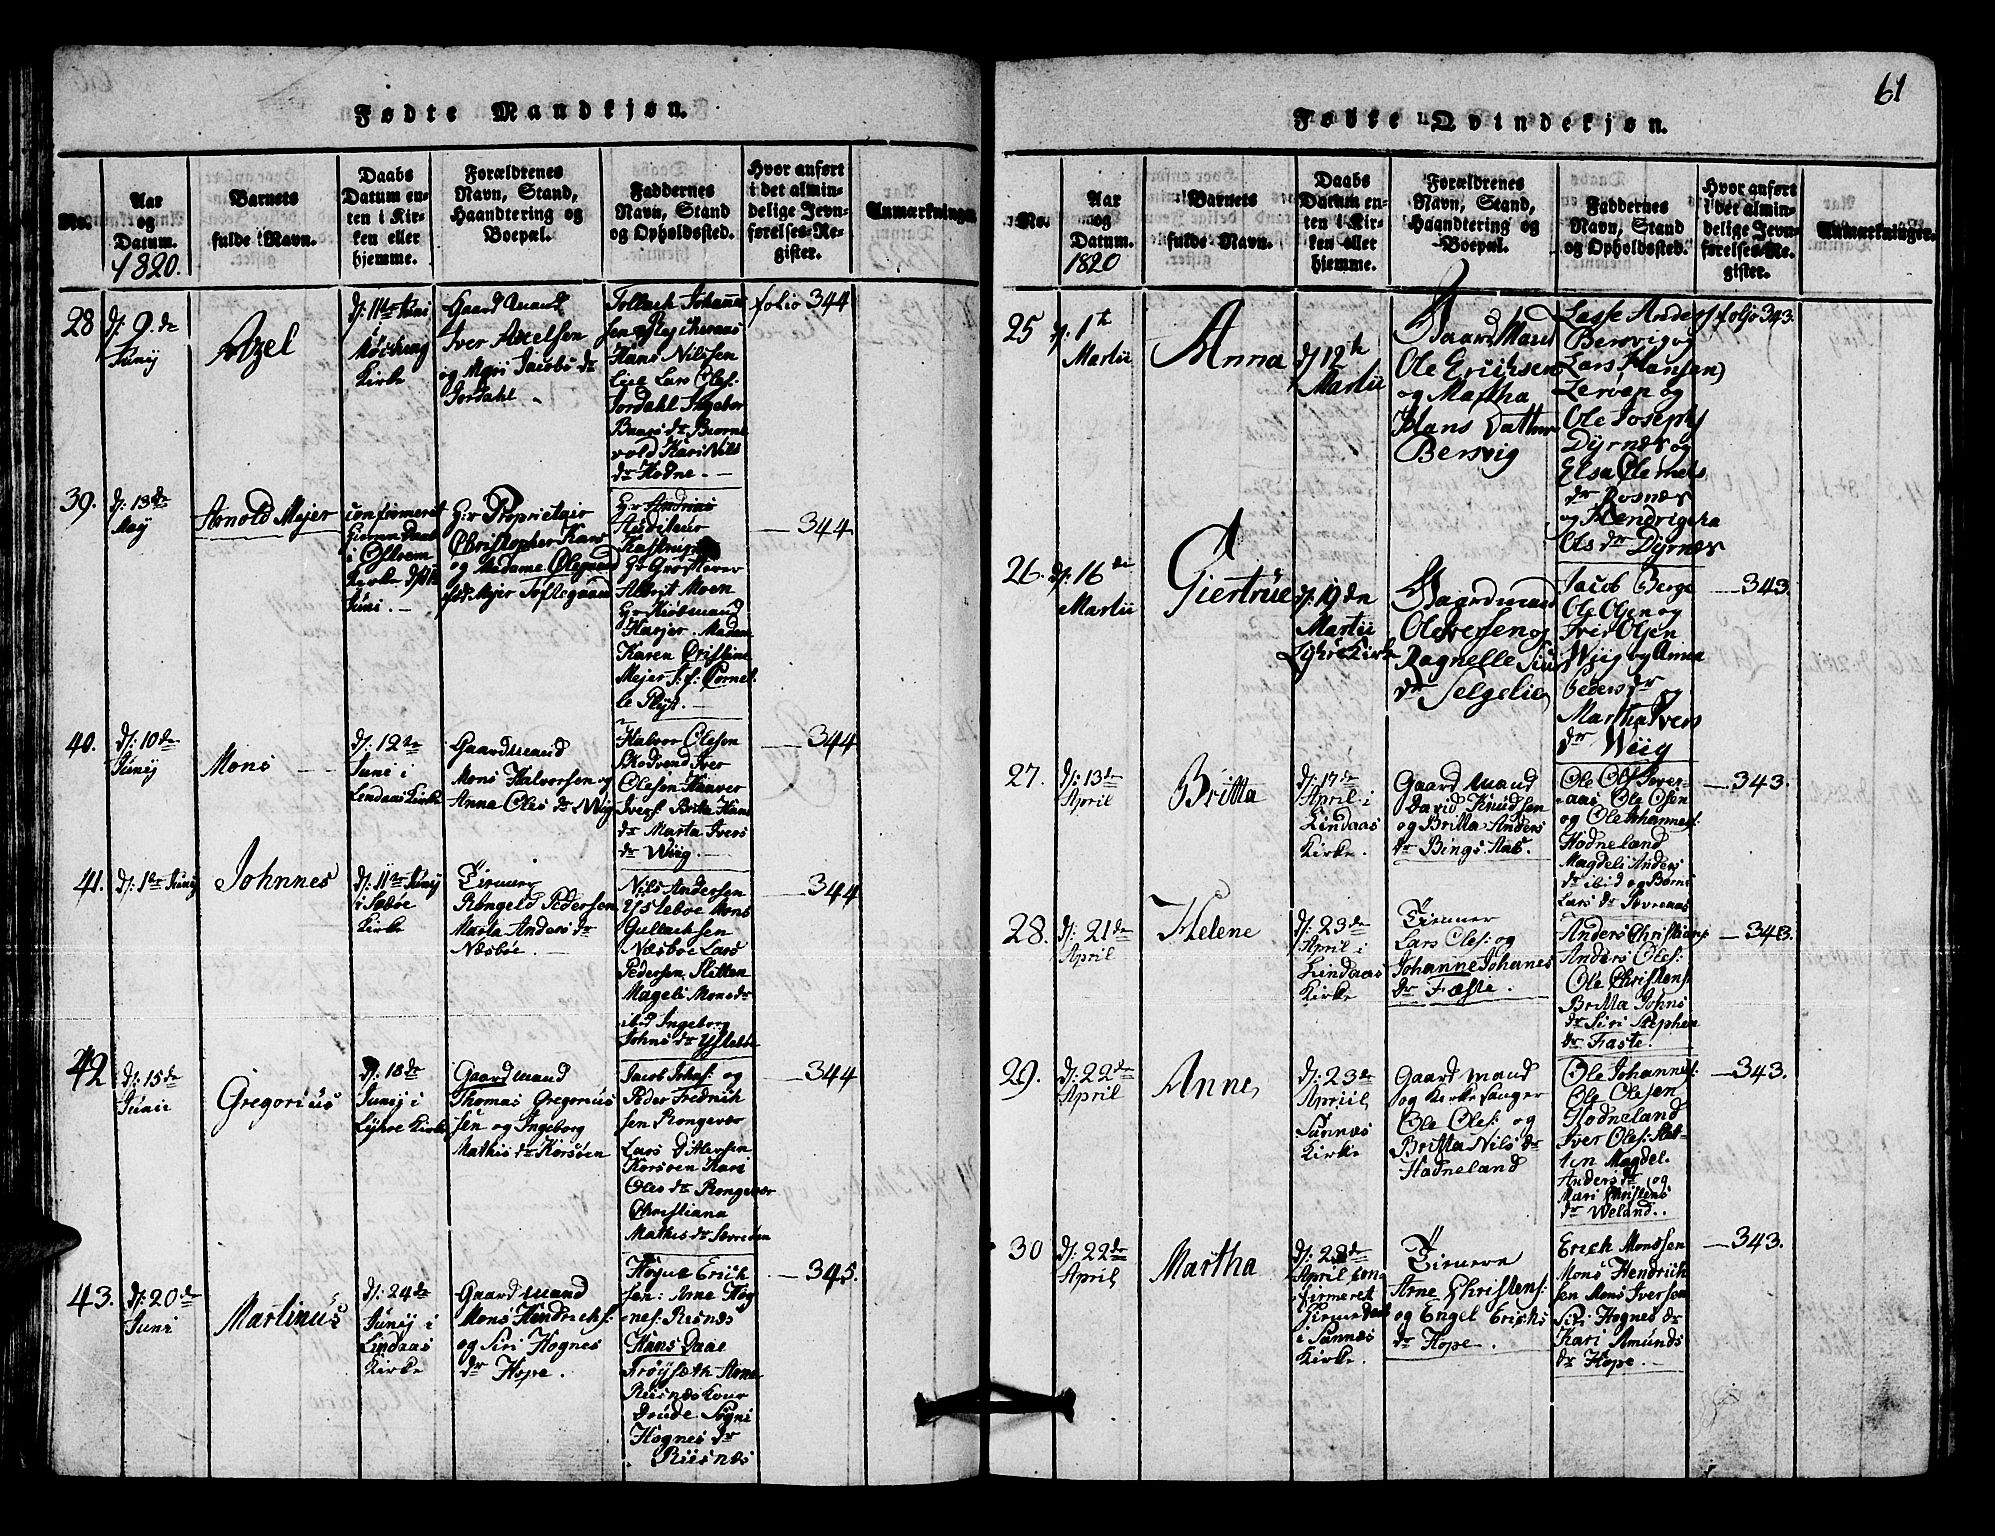 61
Fødte Mandkjøn.
No.
Aar
og
Datum.
1820.
Barnets
fulde Navn.
Daabs
Datum en-
ten i Kir-
ken eller
hjemme.
Forældrenes
Navn, Stand,
Haandtering og
Boepæl.
Faddernes
Navn, Stand
og Opholdsted.
Hvor anført
i det almin-
delige Jevn-
førelses-Re-
gister.
Anmærkninger.
28
d: 9.de
Junij
Axel
d: 11te Juni
i
Kirke
Gaardmand
Iver Axelsen
og Mari Jacobs dr
Jordahl.
Tollach Johanne
sen
Hans Nilssen
Lie Lars Oles:
Jordahl Ingebor
Baars dr Biørne
vold Kari Nils
dr Hodne.
folio 344
39.
d: 13de
Maij
Arnold Mejer
confirmeret
hiemme Daab
i
Kirke
Juni.
Hr Proprietair
Christopher Kars
og Madame Olegaard
fød Mejer Toftegaard
Hr Andreas
Auditeur
Hr Grosserer
Albrit Moen
Hr Kiøbmand
Mejer. Madam
Karen Cristine
Mejer J: f: Cornel
344
40.
d: 10de
Junij
Mons
d: 12te
Juni i
Lindaas Kirke
Gaardmand
Mons Halvorsen og
Anna Oles dr Wiig
Halvor Olesen
Iver
Olesen
Ivers: Brita Hans
dr Marta Ivers
dr Wiig.
344
41.
d: 1te Junij
Johnnes
d: 11te Junij
i Sæbøe
Kirke
Tiemer
Rongeld Pedersen
Marta Anders dr
Næsbøe.
Nils Andersen
Ystebøe Mons
Gullachsen
Næsboe Lars
Pedersen Sletten
Mageli Mons dr
ibid Ingeborg
Johns dr Ystebøe
344
42
d: 15de
Junii
Gregorius
d: 18de
Junij i
Lyhre Kirke
Gaardmand
Thomas Gregorius
sen og Ingeborg
Mathis dr Korsøen
Jacob Johas: og
Peder Fredrich
sen Rongevær
Lars Ditlersen
Korsøen Kari
Oles dr Rongevær
Christiana
Mathis dr
344
43.
d: 20de
Juni
Martinus
d: 24de
Junij i
Lindaas
Kirke
Gaardmand
Mons Hendrichs:
og Siri Hognes
dr Hope.
Hogne Erich
sen: Arne Hog
nes: Risnæs
Hans Daae
Frøysæth Anne
Riisnæs
Drude Sygni
Hognes dr
Riisnæs
345.
Fødte Qvindekjøn.
No.
Aar
og
Datum.
1820
Barnets
fulde Navn.
Daabs
Datum en-
ten i Kir-
ken eller
hjemme.
Forældrenes
Navn, Stand,
Haandtering og
Boepæl.
Faddernes
Navn, Stand
og Opholdsted.
Hvor anført
i det almin-
delige Jevn-
førelses-Re-
gister.
Anmærkninger.
25
d: 1te
Martii
Anna
d: 12te
Martii
Gaard Mand
Ole Erichsen
og Martha
Hans Datter
Bersvig
Lasse Anders
Bersvig og
Lars Hansen
Lervep og
Ole Joseph
Dyrnæs og
Elsa Clemets
dr Rosnæs
og Hendrigcha
Ols dr Dyrnæs
folio 343.
26.
d: 16de
Martii
Giertrüe
d: 19de
Martii
Lyhre Kirke
Gaardmand
Ole Iversen og
Ragnelle
dr Selgelie
Jacob Berge
Ole Olsen og
Iver Olsen
Wiig og Anna
Peders dr
og
Martha Ivers
dr Wiig
343.
27.
d: 13de
April
Britta
d: 17de
April i
Lindaas
Kirke.
Gaard Mand
David Knudsen
og Britta Anders
dr Bings Aas.
Ole Ols: Sæver-
aas Ole Olsen
og Ole Johannes:
Hodneland
Magdeli Anders
dr ibid og Børni
Lars dr Sævraas
343.
28.
d: 21de
April
Helene
d: 23de
April i
Lindaas
Kirke
Tiemer
Lars Oles: og
Johanne Johanes
dr Fæste.
Anders Christians:
Anders Oles:
Ole Christens:
Britta Johns
dr Siri Stephen
dr Faste!
343.
29.
d: 22de
April
Anne
d: 23de
April
Sannæs
Kirke
Gaardmand
og Kirkesanger
Ole Oles: og
Britta Nils dr
Hodneland
Ole Johannes:
Ole Olesen
Hodneland
Iver Oles: Slet-
ten Magdel.
Anders dr og
Mari Christens
dr Weland..
343.
30
d: 22de
April
Martha
d: 23de
April con
firmeret
hiemedaab
i Sannæs
Kirke.
Tiemere
Arne Christens:
og Engel Erichs
dr Hope.
Erich Monssen
Mons Hendrich
sen Mons Iversen
Siri Hognes dr
Kari Amunds
dr Hope.
343.